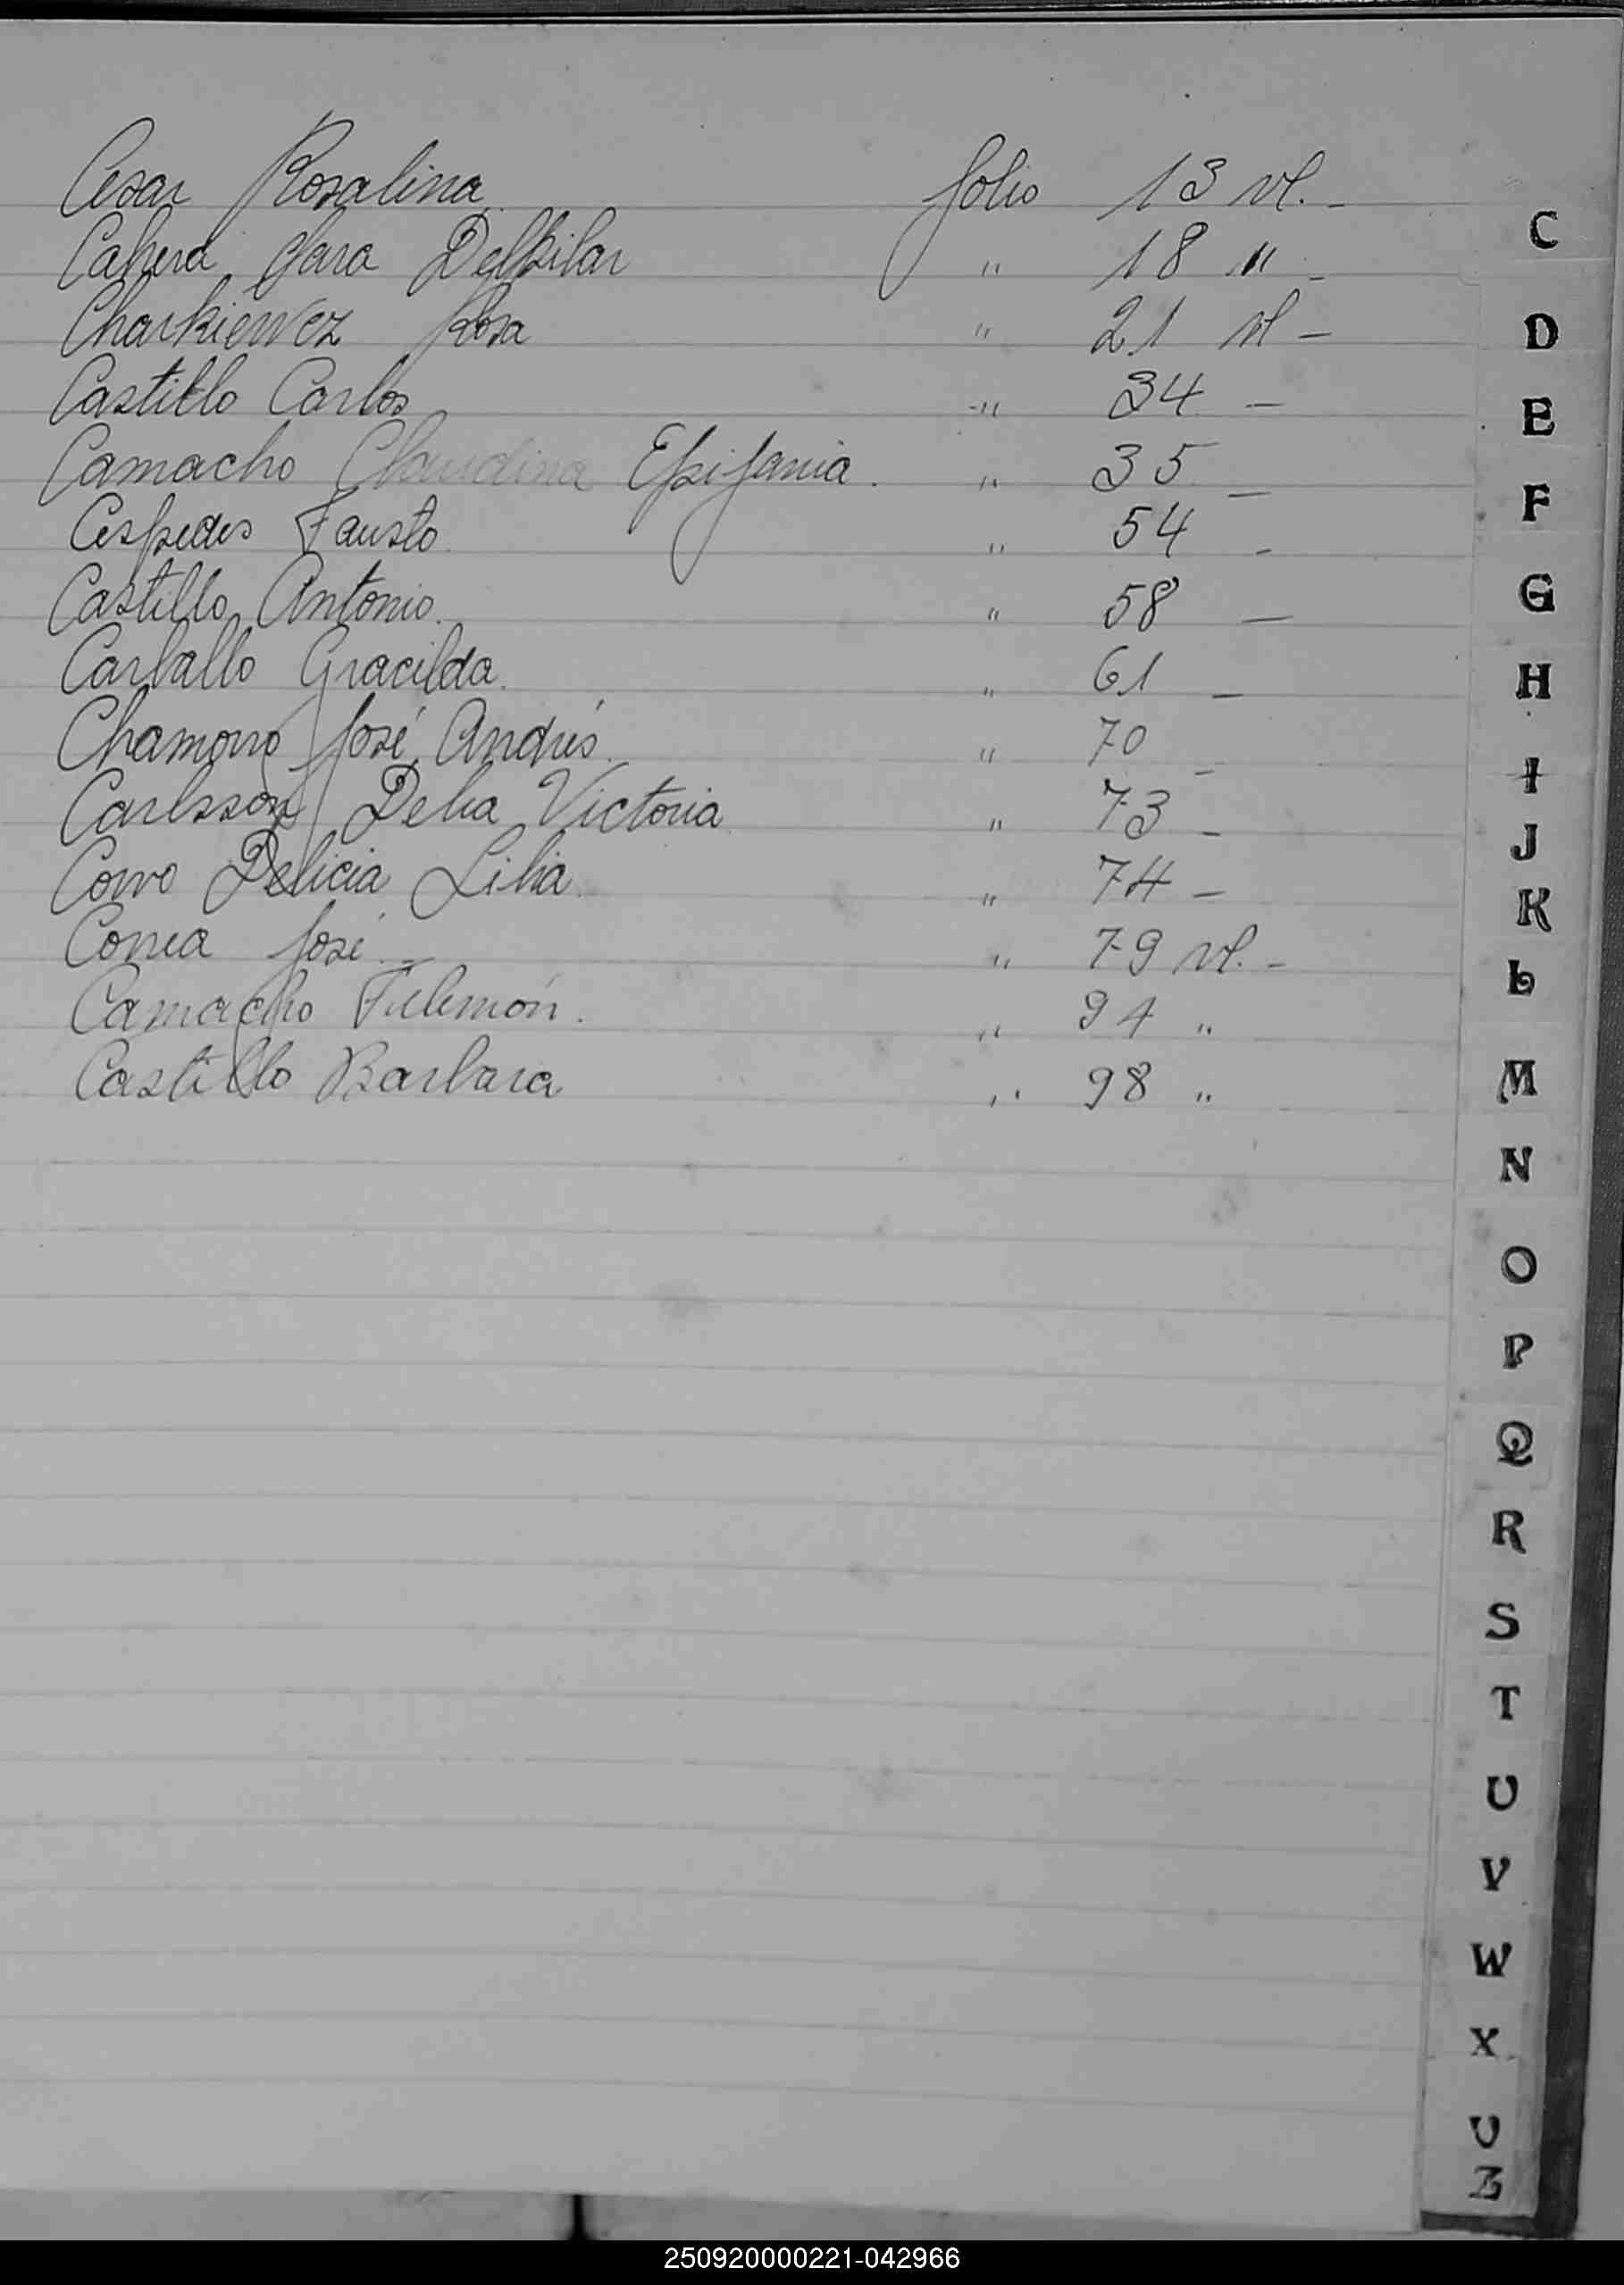 Cesar Rosalina folio 13 vl. -
Cañera Sara DelPilar " 18 " -
Charkiewcz Rosa " 21 vl -
Castillo Carlos " 34 -
Camacho Claudina Epifania. " 35 -
Cespedes Fausto. " 54 -
Castillo Antonio. " 58 -
Carballo Gracilda. " 61 -
Chamorro José Andrés. " 70 -
Carlsson Delia Victoria " 73 -
Corvo Delicia Lilia. " 74 -
Correa José. - " 79 vl. -
Camacho Filemón. " 94 "
Castillo Barbara " 98 "
C
D
E
F
G
H
I
J
K
L
M
N
O
P
Q
R
S
T
U
V
W
X
Z
250920000221-042966